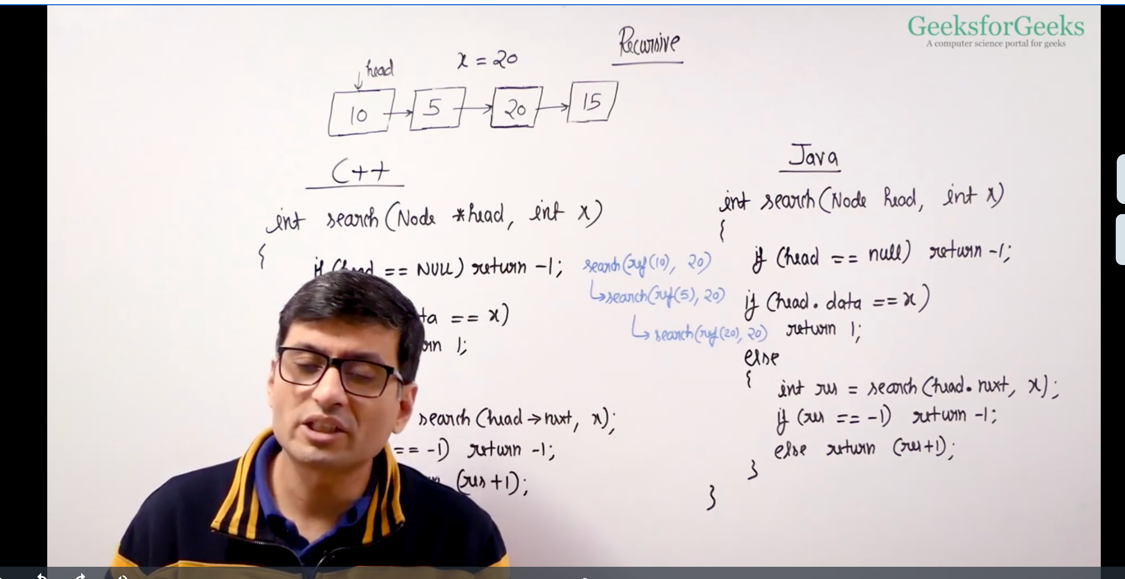 GeeksforGeeks
A computer science portal for geeks
Recursive
x = 20
head
10 5 20 15
C++
int search(Node *head, int x)
{
== NULL) return -1;
== x)
1;
search(head→next, x);
== -1) return -1;
(res+1);
search(ref(10), 20)
search(ref(5), 20)
search(ref(20), 20)
Java
int search(Node head, int x)
{
if (head == null) return -1;
if (head.data == x)
return 1;
else
{
int res = search(head.next, x);
if (res == -1) return -1;
else return (res+1);
}
}